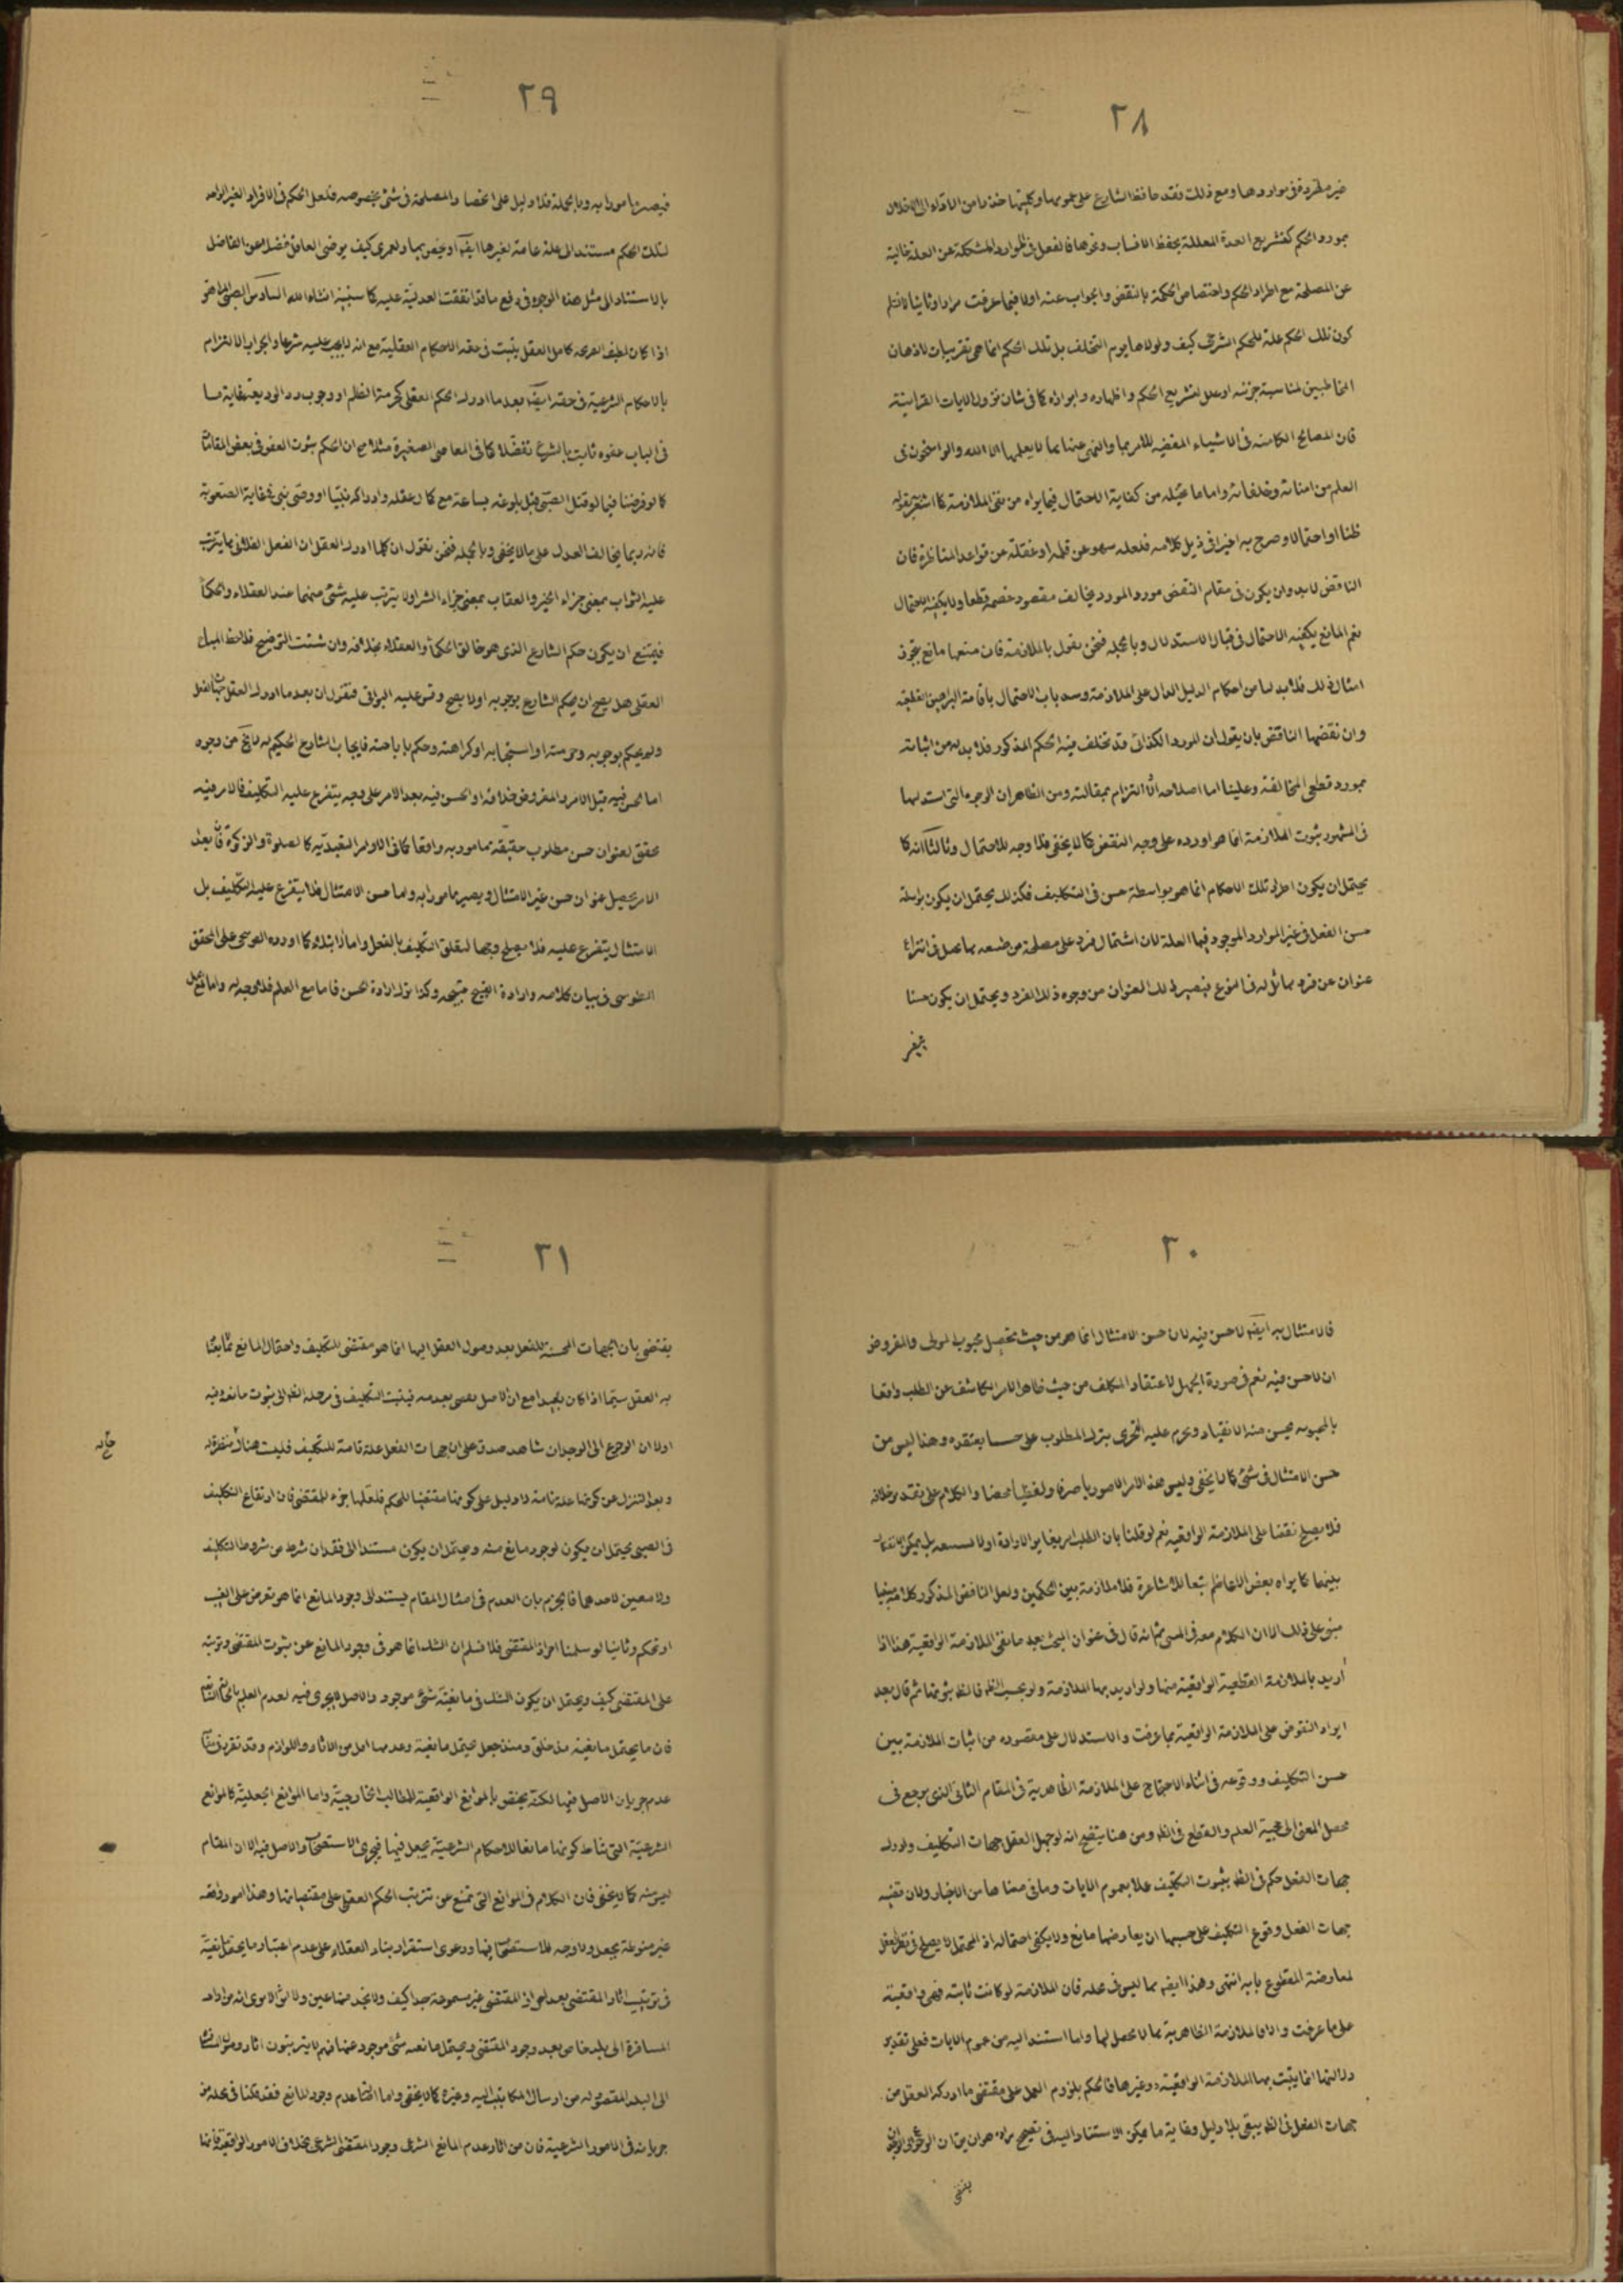 ٢٨
غير مطردة فى مواردها ومع ذلك فقد حافظ الشارع على عمومها وكليتها حذرا من الاخلال
بمورد الحكم كتشريع العدة المعللة بحفظ الانساب ونحوها فالفعل فى الموارد المشكلة عن العلة خالية
عن المصلحة مع اطراد الحكم واختصاص الحكمة بالنقض والجواب عنه اولا فيما عرفت مرارا وثانيا لا نسلم
كون تلك الحكم علة للحكم الشرعى كيف ولولاها يوم التخلف بل تلك الحكم انما هى تقريبات لاذهان
المخاطبين لمناسبة جزئية او علل لتشريع الحكم واظهاره وابرازه كما فى شان نزول الايات القرانية
فان المصالح الكامنة فى الاشياء المقتضية للامر بها والنهى عنها مما لا يعلمها الا الله والراسخون فى
العلم من امنائه وخلفائه واما ما تخيله من كفاية الاحتمال فيما يراه من نفى الملازمة كما اشعر بقوله
ظنا او احتمالا وصرح به اخيرا فى ذيل كلامه فلعله سهو عن قلمه او غفلة عن قواعد المناظرة فان
الناقض لابد وان يكون فى مقام النقض مورد المورد يخالف مقصود خصمه قطعا ولا يكفيه الاحتمال
نعم المانع يكفيه الاحتمال فى قبال الاستدلال وبالجملة فنحن نقول بالملازمة فان منعها مانع بتجويز
امثال ذلك فلابد لنا من احكام الدليل الدال على الملازمة وسد باب الاحتمال باقامة البراهين القطعية
وان نقضها الناقض بان يقول ان المورد الكذائى قد تخلف فيه الحكم المذكور فلابد له من اثباته
بمورد قطعى المخالفة وعلينا اما اصلاحه او التزام بمقالته ومن الظاهر ان الوجوه التى استدل بها
فى المشهور بثبوت الملازمة انما هو اورده على وجه النقض كما لا يخفى فلا وجه للاحتمال وثالثا انه كما
يحتمل ان يكون اطراد تلك الاحكام انما هو بواسطة حسن فى التكليف فكذلك يحتمل ان يكون بواسطة
حسن الفعل فى غير الموارد الموجود فيها العلة لان اشتمال فرد على مصلحة من طبيعة مما يعمل فى انتزاع
عنوان عن فرد مماثل له فى النوع فيصير ذلك العنوان من وجوه ذلك الفرد ويحتمل ان يكون حسنا
٢٩
فيصير مامورا به وبالجملة فلا دليل على انحصار المصلحة فى شئ بخصوصه فلعل الحكم فى الافراد الغير الواجد
لتلك الحكم مستند الى علة عامة لغيرها ايضا او يختص بها ولعمرى كيف يرضى العاقل فضلا عن الفاضل
بالاستناد الى مثل هذه الوجوه فى رفع ما قد اتفقت العدلية عليه كما سنبينه انشاء الله السادس الصبى المراهق
اذا كان لطيف القريحة كامل العقل يثبت فى حقه الاحكام العقلية مع انه لا يجب عليه شرعا والجواب الالتزام
بالاحكام الشرعية فى حقه ايضا بعد ما ادرك الحكم العقلى كحرمة الظلم او وجوب رد الوديعة غاية ما
فى الباب عفوه ثابت بالشرع تفضلا كما فى المعاصى الصغيرة مثلا مع ان الحكم بثبوت العفو فى بعض المقامات
كما لو فرضنا فيما لو قتل الصبى قبل بلوغه بساعة مع كمال عقله وادراكه نبيا او وصى نبى فى غاية الصعوبة
فانه ربما يخالف العدل على ما لا يخفى وبالجملة فنحن نقول ان كلما ادرك العقل ان الفعل الفلانى مما يترتب
عليه الثواب بمعنى جزاء الخير والعقاب بمعنى جزاء الشر اولا يترتب عليه شئ منهما عند العقلاء والحكماء
فيمتنع ان يكون حكم الشارع الذى هو خالق الحكماء والعقلاء بخلافه وان شئت التوضيح فلاحظ المباح
العقلى هل يصح ان يحكم الشارع بوجوبه اولا يصح وقس عليه البواقى فنقول ان بعد ما ادرك العقل جهات الفعل
ولم يحكم بوجوبه وحرمته او استحبابه او كراهته وحكم باباحته فايجاب الشارع الحكيم له لا يخ من وجوه
اما لحسن فيه قبل الامر والمفروض خلافه او لحسن فيه بعد الامر على وجه يتفرع عليه التكليف فالامر فيه
محقق لعنوان حسن مطلوب حقيقة مامور به واقعا كما فى الاوامر التعبدية كالصلوة والزكوة فان بعد
الامر يحصل عنوان حسن غير الامتثال ويصير مامورا به واما حسن الامتثال فلا يتفرع عليه التكليف بل
الامتثال يتفرع عليه فلا يصلح وجها لتعلق التكليف بالفعل واما ابتلاء كما اورده العوسجى على المحقق
الطوسى فى بيان كلامه وارادة القبيح قبيحة وكذا ترك ارادة الحسن فاما مع العلم فلا وجه له واما مع
٣٠
فالامتثال به ايضا لاحسن فيه لان حسن الامتثال انما هو من حيث تحصيل محبوب المولى والمفروض
ان لاحسن فيه نعم فى صورة الجهل لاعتقاد المكلف من حيث ظاهر الامر الكاشف عن الطلب واقعا
بالمحبوبية يحسن منه الانقياد ويحرم عليه التجرى بترك المطلوب على حسب معتقده وهذا ليس من
حسن الامتثال فى شئ كما لا يخفى وليس هذا الامر الا صوريا صرفا ولفظيا محضا والكلام على تقدير خلافه
فلا يصلح نقضا على الملازمة الواقعية نعم لو قلنا بان الطلب امر يغاير الارادة اولا بل يمكن الانفكاك
بينهما كما يراه بعض الاعاظم تبعا للاشاعرة فلا ملازمة بين الحكمين ولعل الناقض المذكور كلامه فيها
مبنى على ذلك الا ان الكلام معه فى المسمى ثم انه قال فى عنوان البحث بعد ما نفى الملازمة الواقعية هذا اذا
أريد بالملازمة القطعية الواقعية منها ولو اريد بها الملازمة ولو بحسب الظاهر فالظاهر ثبوتها ثم قال بعد
ايراد النقوض على الملازمة الواقعية بما عرفت والاستدلال على مقصوده من اثبات الملازمة بين
حسن التكليف ووقوعه فى اثناء الاحتجاج على الملازمة الظاهرية فى المقام الثانى الذى يرجع فى
محصل المعنى الى حجية العلم والقطع فى الظاهر ومن هنا يتضح انه لو جهل العقل جهات التكليف وادرك
جهات الفعل حكم فى الظاهر بثبوت التكليف عملا بعموم الايات وما فى معناها من الاخبار ولان قضية
جهات الفعل وقوع التكليف على حسبها ان يعارضها مانع ولا يكفى احتماله اذ المحتمل لا يصلح فى نظر العقل
لمعارضة المقطوع بابه انتهى وهذا ايضا مما ليس فى محله فان الملازمة لو كانت ثابتة فهى واقعية
على ما عرفت والا فالملازمة الظاهرية مما لا محصل لها واما استند اليه من عموم الايات فعلى تقدير
دلالتها انما يثبت بها الملازمة الواقعية دون غيرها فالحكم بلزوم العمل على مقتضى ما ادركه العقل من
جهات الفعل فى الظاهر يبقى بلا دليل وغاية ما يمكن الاستناد اليه فى تصحيح مراده هو ان يقال ان
٣١
يقتضى بان الجهات المحسنة للفعل بعد وصول العقل اليها انما هو مقتضى للتكليف واحتمال المانع مما لا يعتنى
به العقل سيما اذا كان بعيدا مع ان الاصل يقضى بعدمه فيثبت التكليف فى مرحلة الظاهر الى ثبوت مانعه وفيه
اولا ان الرجوع الى الوجدان شاهد صدق على ان جهات الفعل علة تامة للتكليف فليست هناك
وبعد التنزل عن كونها علة تامة لا دليل على كونها مقتضيا للحكم فلعلها جزء للمقتضى فان ارتفاع التكليف
فى الصبى يحتمل ان يكون لوجود مانع منه ويحتمل ان يكون مستندا الى فقدان شرط من شروط التكليف
ولا معين لاحدهما فالجزم بان العدم فى امثال المقام يستند الى وجود المانع انما هو تعرض على الغيب
او تحكم وثانيا لو سلمنا احراز المقتضى فلا نسلم ان الشك انما هو فى وجود المانع عن ثبوت المقتضى وترتبه
على المقتضى كيف ويحتمل ان يكون الشك فى مانعية شئ موجود والاصل لا يجرى فيه لعدم العلم بالحالة السابقة
فان ما يحتمل مانعيته مذ خلق ومنذ جعل يحتمل مانعيته وعدمها اهل من الاثار واللوازم وقد تقرر
عدم جريان الاصل فيها لكنه يختص بالموانع الواقعية للمطالب الخارجية واما الموانع الجعلية كالموانع
الشرعية التى نشاط كونها مانعا للاحكام الشرعية بجعل فيها فيجرى الاستصحاب والاصل فيه الا ان المقام
ليس منه كما لا يخفى فان الكلام فى الموانع التى تمنع عن ترتب الحكم العقلى على مقتضياتها وهذا امور واقعية
غير منوطة بجعل ولا وجه للاستصحاب فيها ودعوى استقرار بناء العقلاء على عدم اعتبار ما يحتمل مانعيته
فى ترتيب اثار المقتضى بعد احراز المقتضى غير مسموعة جدا كيف ولا نجد منها عين ولا اثر الا ترى انه من اراد
المسافرة الى بلد خاص بعد وجود المقتضى ويحتمل مانعية شئ موجود عنها فهم لا يترتبون اثار وصول
الى البلد المقصود له من ارسال المكاتيب اليه وغيره كما لا يخفى واما اصالة عدم وجود المانع فقد تمكنا فى محله من
جريانه فى الامور الشرعية فان من اثار عدم المانع الشرعى وجود المقتضى الشرعى بخلاف الامور الواقعية فانها